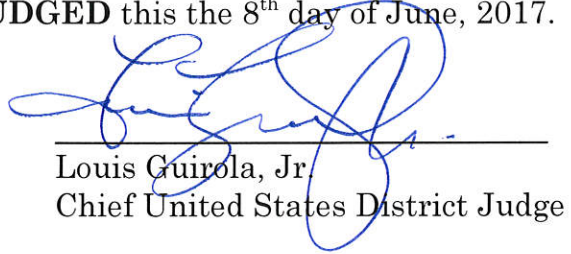 UDGED this the 8th day of June, 2017.
Louis Guirola, Jr.
Chief United States District Judge